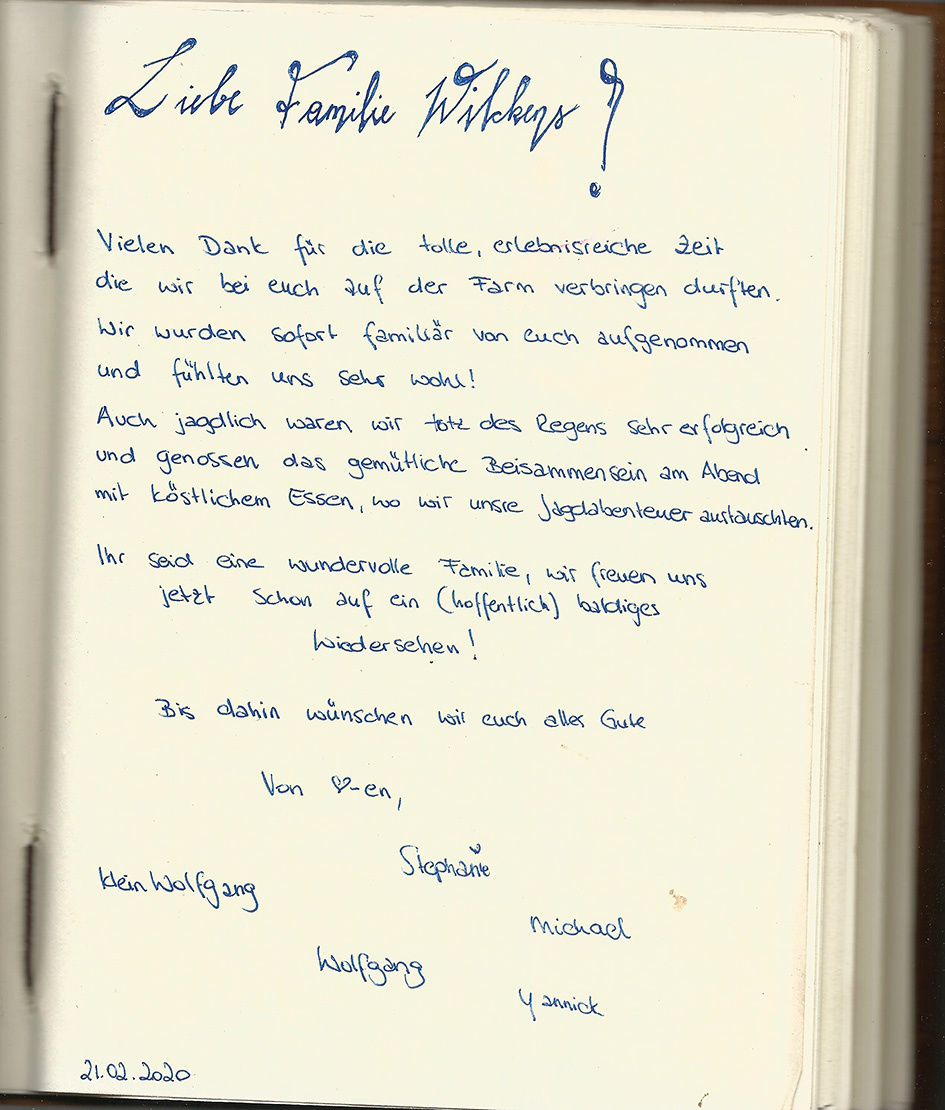 Liebe Familie Wilckens!
Vielen Dank für die tolle, erlebnisreiche Zeit
die wir bei euch auf der Farm verbringen durften.
Wir wurden sofort familiär von euch aufgenommen
und fühlten uns sehr wohl!
Auch jagdlich waren wir totz des Regens sehr erfolgreich
und genossen das gemütliche Beisammensein am Abend
mit köstlichem Essen, wo wir unsre Jagdabenteuer austauschten.
Ihr seid eine wundervolle Familie, wir freuen uns
jetzt schon auf ein (hoffentlich) baldiges
Wiedersehen!
Bis dahin wünschen wir euch alles Gute
Von ♡-en,
Stephanie
Klein Wolfgang
Michael
Wolfgang
Yannick
21.02.2020